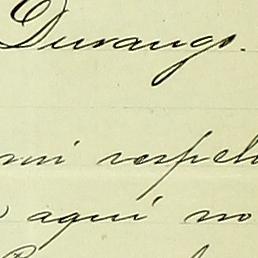 Durango.
mi respeto
aquí no